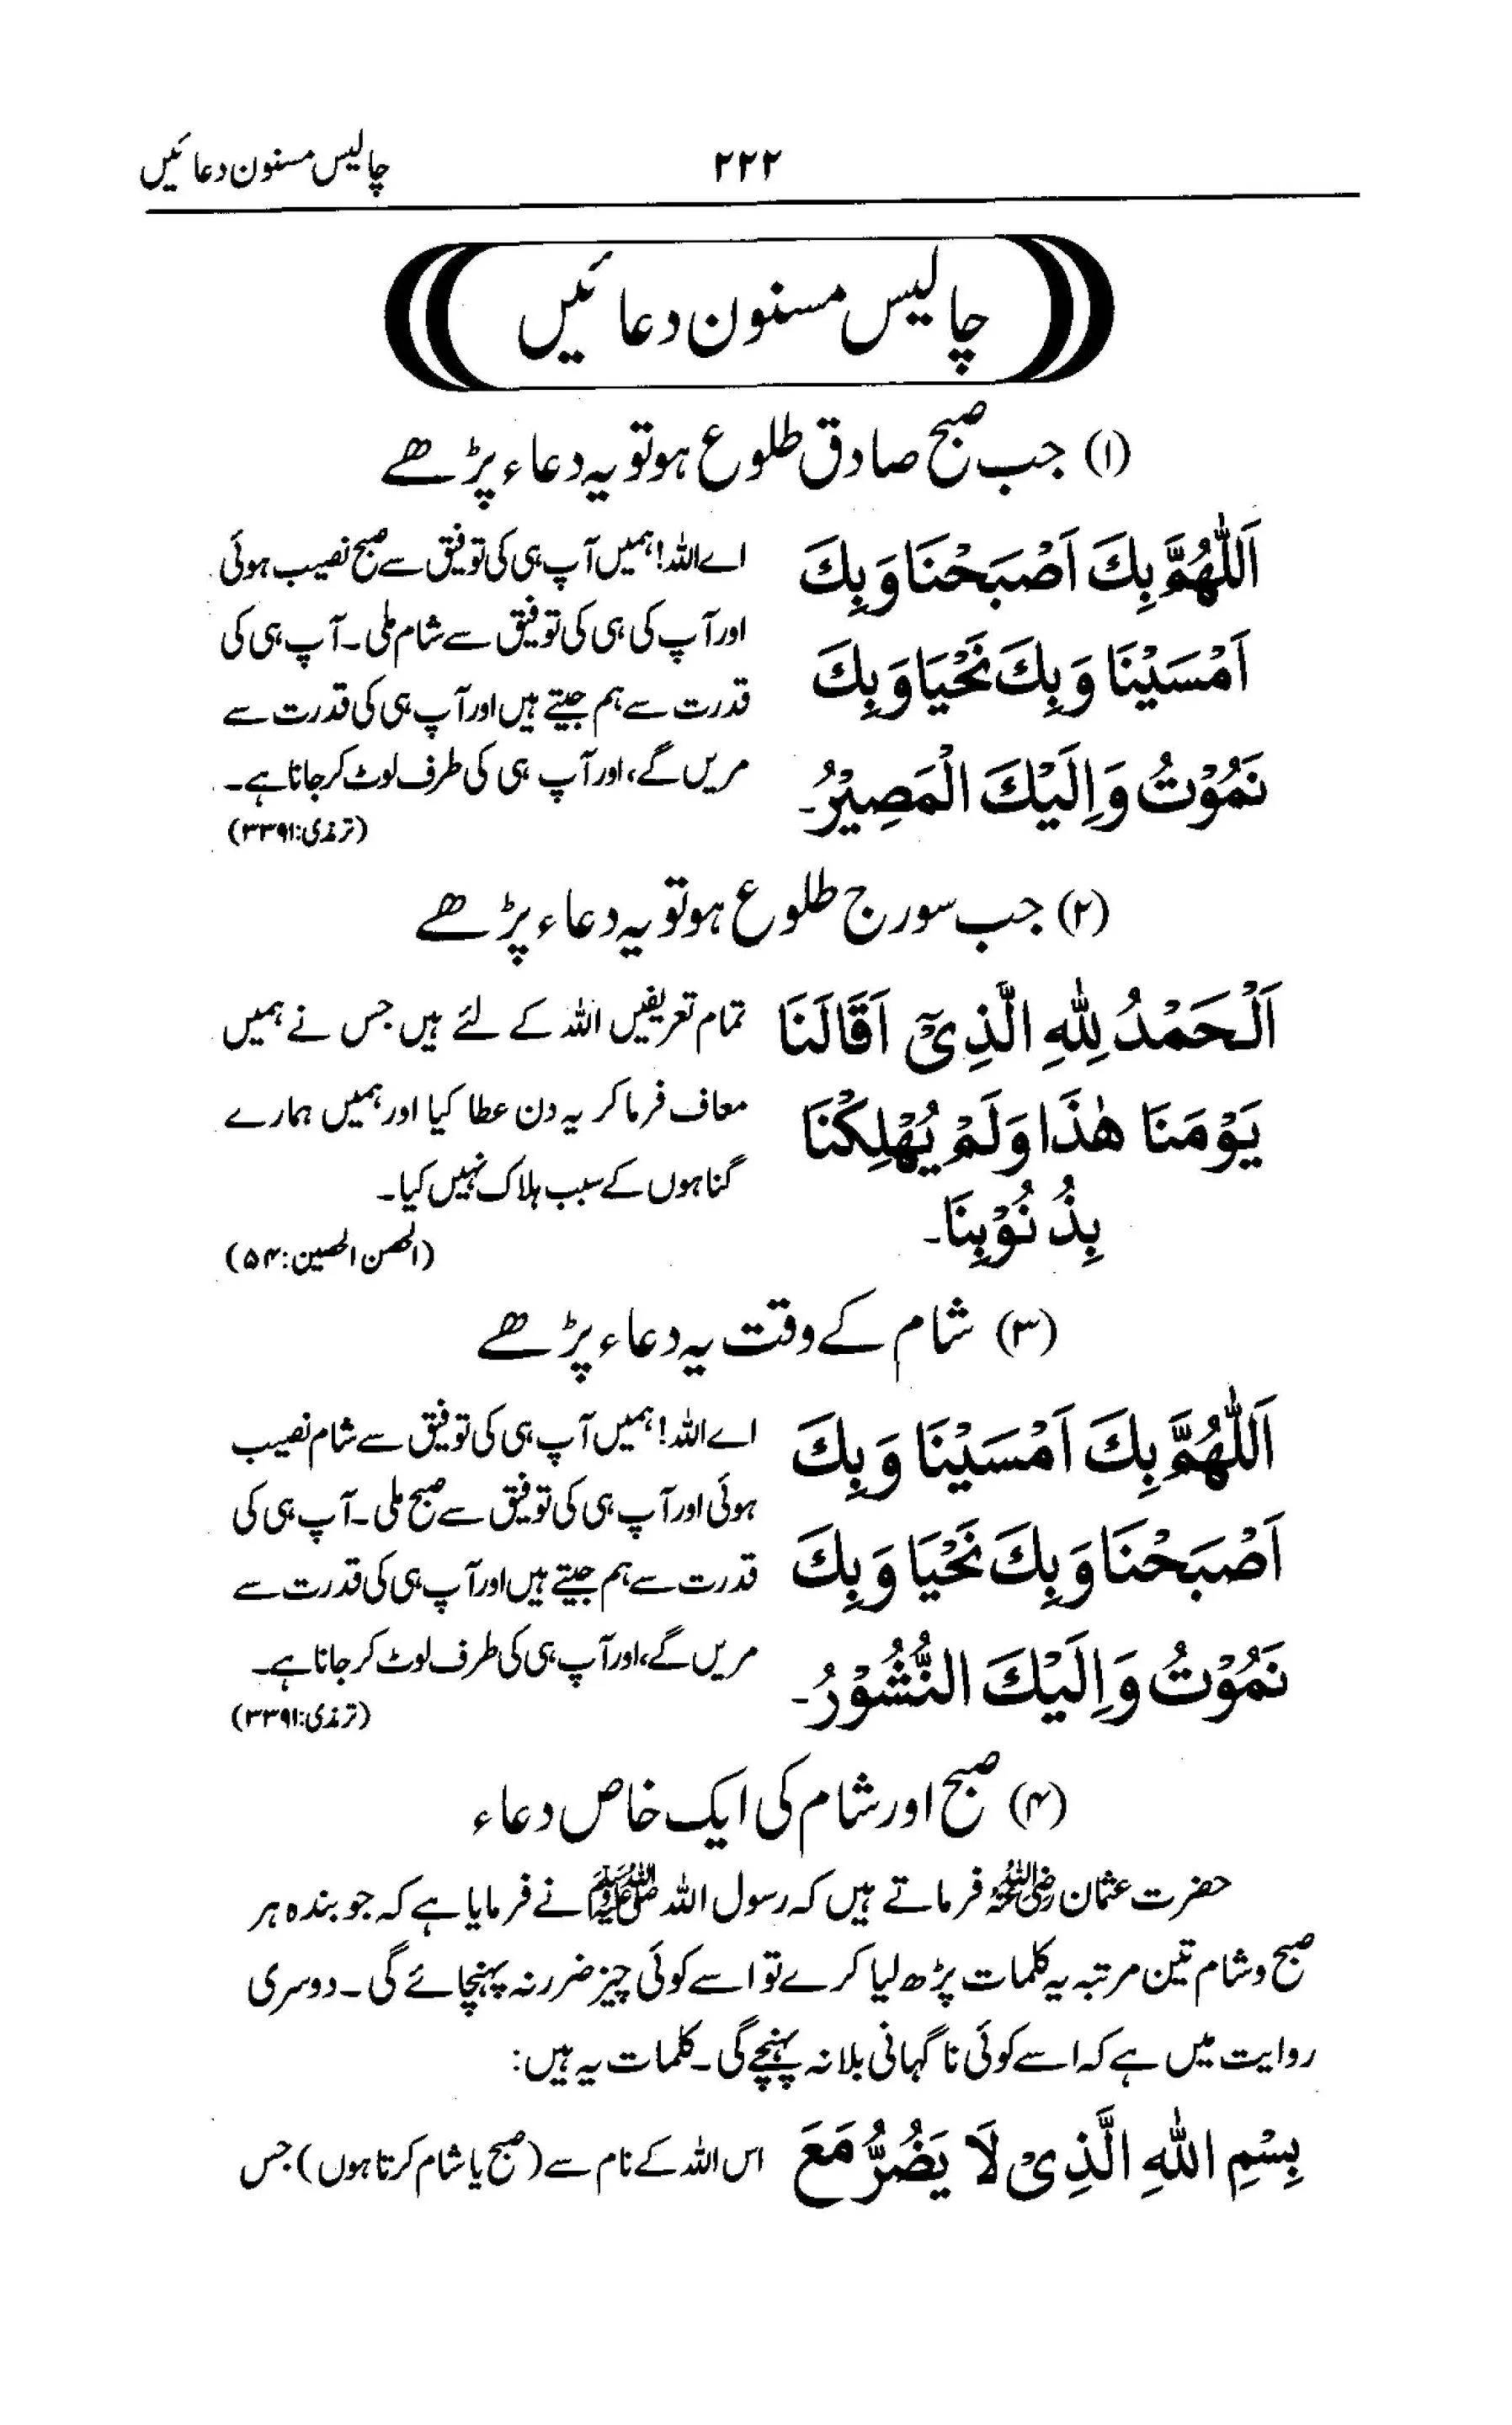 چالیس مسنون دعائیں
۲۲۲
چالیس مسنون دعائیں
(۱) جب صبح صادق طلوع ہو تو یہ دعاء پڑھے
اَللّٰهُمَّ بِكَ اَصْبَحْنَا وَبِكَ
اَمْسَيْنَا وَبِكَ نَحْيَا وَبِكَ
نَمُوْتُ وَاِلَيْكَ الْمَصِيْرُ۔
اے اللہ! ہمیں آپ ہی کی توفیق سے صبح نصیب ہوئی
اور آپ کی ہی کی توفیق سے شام ملی۔ آپ ہی کی
قدرت سے ہم جیتے ہیں اور آپ ہی کی قدرت سے
مریں گے، اور آپ ہی کی طرف لوٹ کر جانا ہے۔
(ترمذی: ۳۳۹۱)
(۲) جب سورج طلوع ہو تو یہ دعاء پڑھے
اَلْحَمْدُ لِلّٰهِ الَّذِیْٓ اَقَالَنَا
يَوْمَنَا هٰذَا وَلَمْ يُهْلِكْنَا
بِذُنُوْبِنَا۔
تمام تعریفیں اللہ کے لئے ہیں جس نے ہمیں
معاف فرما کر یہ دن عطا کیا اور ہمیں ہمارے
گناہوں کے سبب ہلاک نہیں کیا۔
(الحصن الحصین: ۵۴)
(۳) شام کے وقت یہ دعاء پڑھے
اَللّٰهُمَّ بِكَ اَمْسَيْنَا وَبِكَ
اَصْبَحْنَا وَبِكَ نَحْيَا وَبِكَ
نَمُوْتُ وَاِلَيْكَ النُّشُوْرُ۔
اے اللہ! ہمیں آپ ہی کی توفیق سے شام نصیب
ہوئی اور آپ ہی کی توفیق سے صبح ملی۔ آپ ہی کی
قدرت سے ہم جیتے ہیں اور آپ ہی کی قدرت سے
مریں گے، اور آپ ہی کی طرف لوٹ کر جانا ہے۔
(ترمذی: ۳۳۹۱)
(۴) صبح اور شام کی ایک خاص دعاء
حضرت عثمان رضی اللہ عنہ فرماتے ہیں کہ رسول اللہ ﷺ نے فرمایا ہے کہ جو بندہ ہر
صبح و شام تین مرتبہ یہ کلمات پڑھ لیا کرے تو اسے کوئی چیز ضرر نہ پہنچائے گی۔ دوسری
روایت میں ہے کہ اسے کوئی ناگہانی بلا نہ پہنچے گی۔ کلمات یہ ہیں:
بِسْمِ اللهِ الَّذِیْ لَا يَضُرُّ مَعَ
اس اللہ کے نام سے (صبح یا شام کرتا ہوں) جس